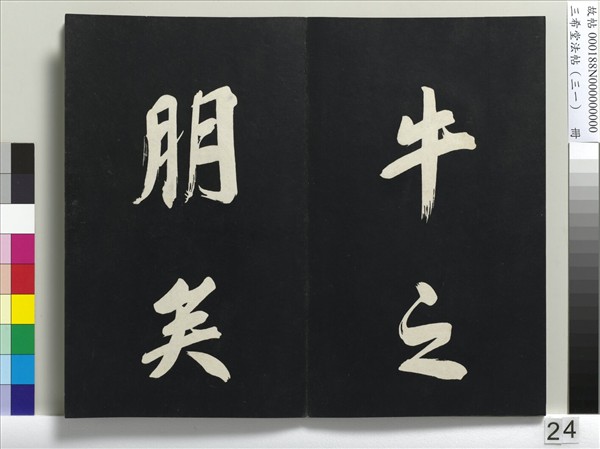 牛之
朋矣
故帖 000188N000000000
三希堂法帖（三一） 冊
24